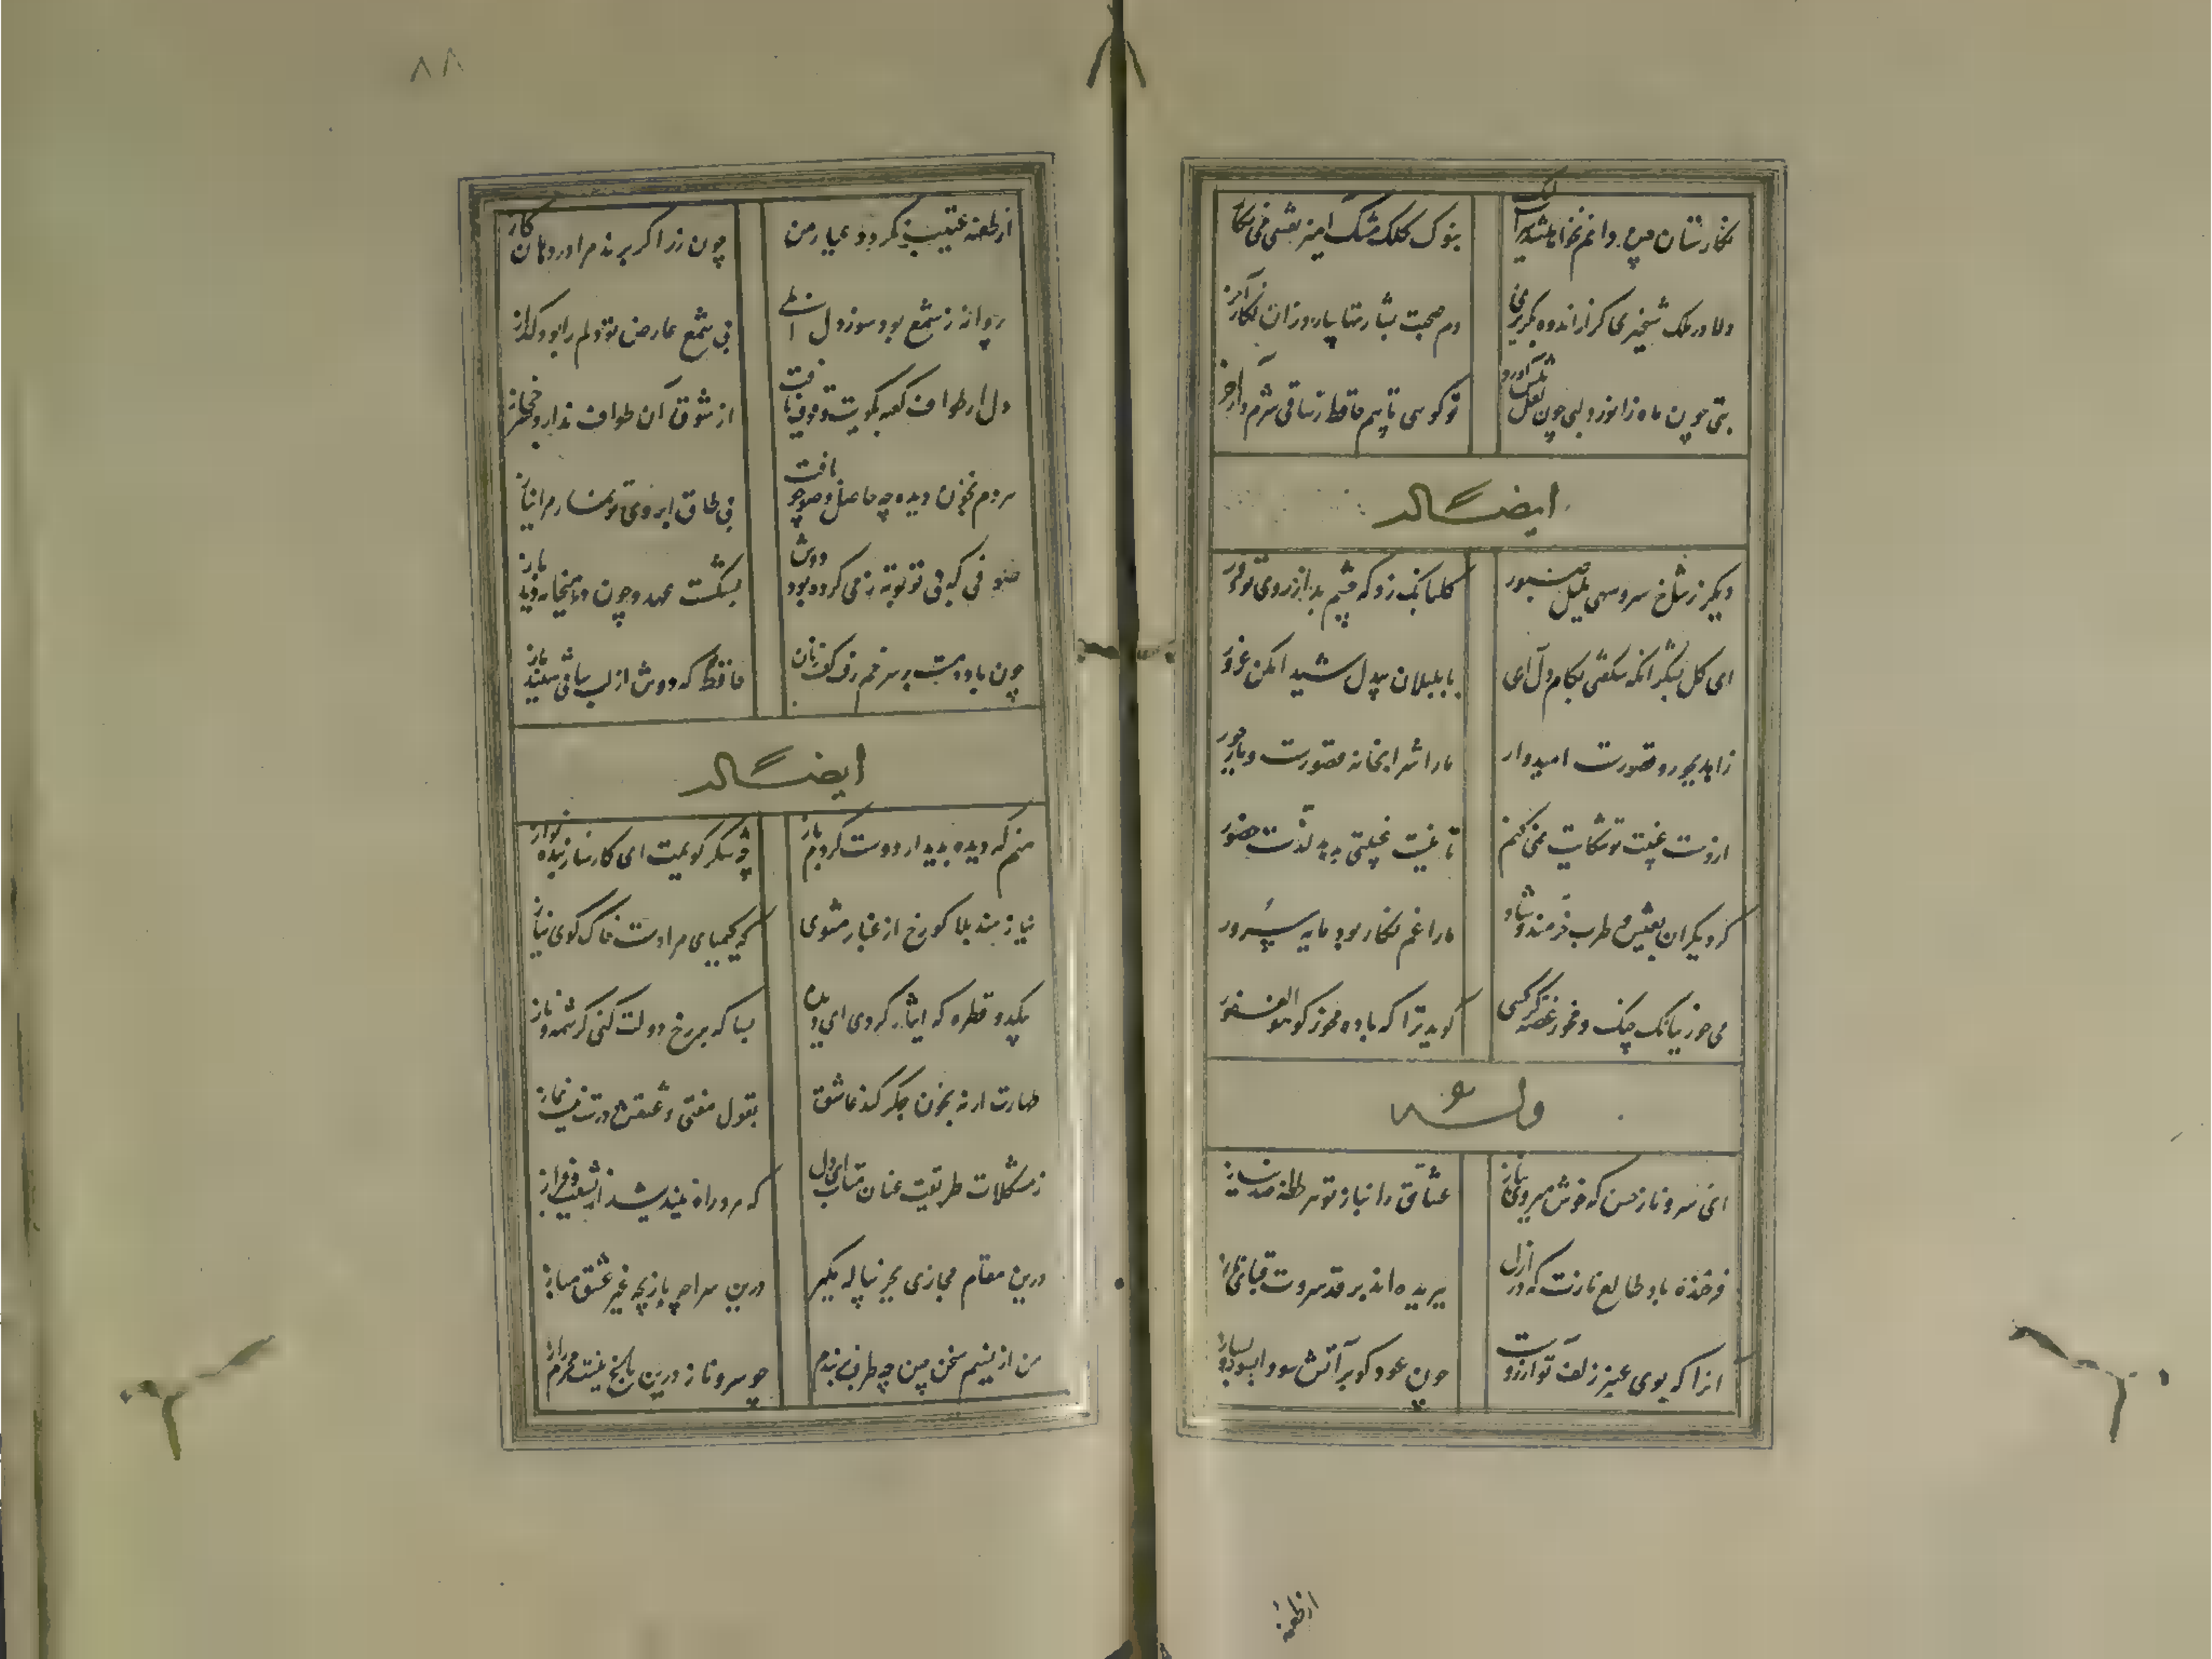 نگارستان چین دانم نخواهد شد سرایت لیک
بنوک کلک مشک آمیز نقشی می نگار
دلا در ملک شبخیزی گر از اندوه بگریزی
دم صبحت بشارتها بیارد زان نگار آخر
بتی چون ماه زانو زد و لبی چون لعل پیش آورد
تو گوئی تایبم حافظ ز ساقی شرم دار آخر
ایضاً له
دیگر ز شاخ سرو سهی بلبل صبور
گلبانگ زد که چشم بد از روی تو دور
ای گل بشکر آنکه شکفتی بکام دل
با بلبلان بیدل شیدا مکن غرور
زاهد بحور و قصورت امیدوار
ما را شرابخانه قصورست و یار حور
از دست غیبت تو شکایت نمی کنم
تا نیست غیبتی ندهد لذت حضور
گر دیگران بعیش و طرب خرمند و شاد
ما را غم نگار بود مایه سرور
می خور ببانک چنک و مخور غصه گر کسی
گوید ترا که باده مخور گو هو الغفور
وله
ای سرو ناز حسن که خوش میروی بناز
عشاق را بناز تو هر لحظه صد نیاز
فرخنده باد طالع نازت که در ازل
ببریده اند بر قد سروت قبای ناز
انرا که بوی عنبر زلف تو آرزوست
چون عود گو بر آتش سودا بسوز و بساز
از طعنه
۸۸
از طعنه رقیب نگردد عیار من
چون زر اگر برند مرا در دهان کاز
پروانه ز شمع بود سوز دل
بی شمع عارض تو دلم را بود گداز
دل از طواف کعبه کویت وقوف یافت
از شوق آن طواف ندارد حجاز
هردم بخون دیده چه حاصل وضو چو
بی طاق ابروی تو نماز مرا نیاز
صوفی که بی تو توبه ز می کرده بود دوش
بشکست عهد و چون در میخانه دید باز
چون باده مست بر سر خم رفت کف زنان
حافظ که دوش از لب ساقی شنید راز
ایضاً له
منم که دیده بدیدار دوست کردم باز
چه شکر گویمت ای کارساز بنده نواز
نیازمند بلا گو رخ از غبار مشوی
که کیمیای مرادست خاک کوی نیاز
بیکدو قطره که ایثار کردی ای دیده
بسا که بر رخ دولت کنی کرشمه و ناز
طهارت ار نه بخون جگر کند عاشق
بقول مفتی عشقش درست نیست نماز
ز مشکلات طریقت عنان متاب ای دل
که مرد راه نیندیشد از نشیب و فراز
درین مقام مجازی بجز پیاله مگیر
درین سراچه بازیچه غیر عشق مباز
من از نسیم سخن چین چه طرف بربندم
چو سرو ناز درین باغ نیست محرم راز